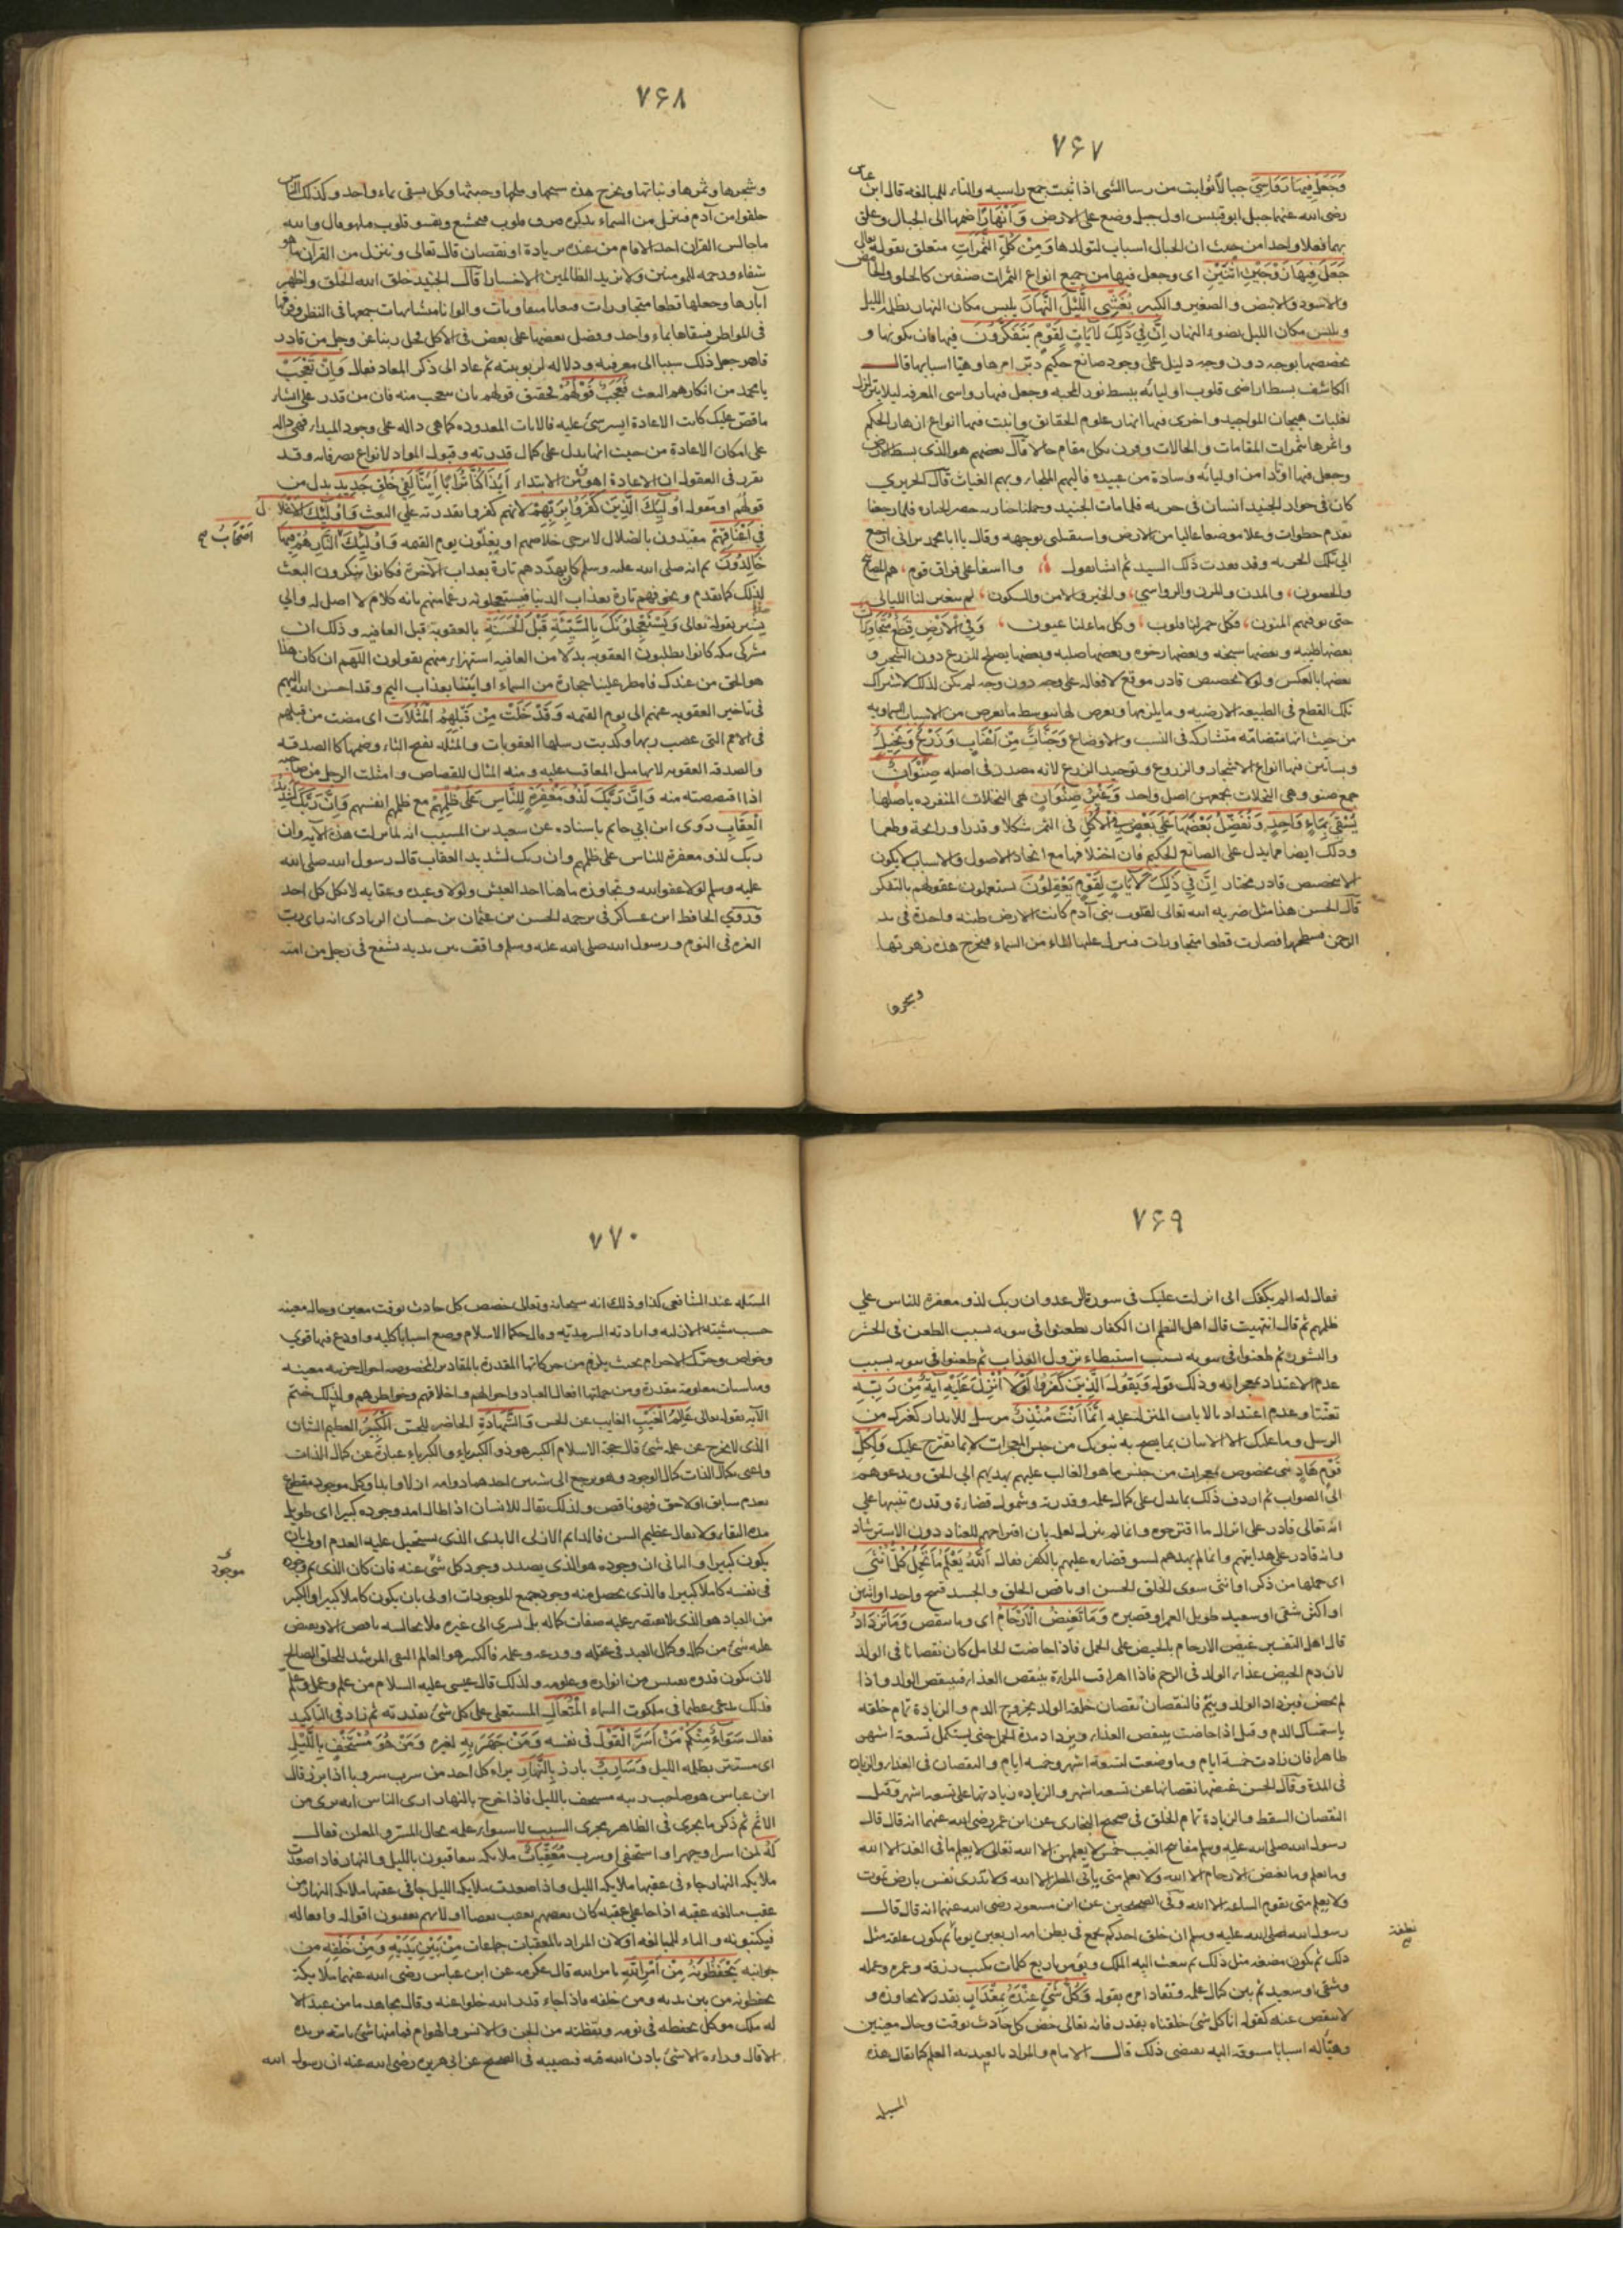 ٧۶٧
وَجَعَلَ فِيهَا رَوَاسِيَ جبالًا ثوابت من رسا الشئ اذا ثبت جمع راسيه والتاء للمبالغه قال ابن عباس
رضى الله عنهما جبل ابو قبيس اول جبل وضع على الارض وَأَنْهَارًا ضمها الى الجبال وعلق
بهما فعلا واحدا من حيث ان الجبال اسباب لتولدها وَمِنْ كُلِّ الثَّمَرَاتِ متعلق بقوله تعالى
جَعَلَ فِيهَا زَوْجَيْنِ اثْنَيْنِ اى وجعل فيها من جميع انواع الثمرات صنفين كالحلو والحامض
والاسود والابيض والصغير والكبير يُغْشِي اللَّيْلَ النَّهَارَ يلبس مكان النهار بظلمة الليل
ويلبس مكان الليل بضوء النهار إِنَّ فِي ذَلِكَ لَآيَاتٍ لِقَوْمٍ يَتَفَكَّرُونَ فيها فان تكونها و
تخصصها بوجه دون وجه دليل على وجود صانع حكيم دبّر امرها وهيّا اسبابها قال
الكاشف بسط اراضى قلوب اوليائه ببسط نور المحبه وجعل فيها رواسى المعرفه ليلا يتزلزل
بغلبات هيجان المواجيد واجرى فيها انهار علوم الحقائق وانبت فيها انواع ازهار الحكم
واثمرها ثمرات المقامات والحالات كل مقام حالا قال بعضهم هو الذى بسط الارض
وجعل فيها اوتادا من اوليائه وسادة من عبيده فاليهم الملجا وبهم الغياث قال الحريرى
كان فى جوار الجنيد انسان فى خربه فلما مات الجنيد وحملنا جنازته حضر الجنازه فلما رجعنا
تقدم خطوات وعلا موضعا عاليا من الارض واستقبلنى بوجهه وقال يا ابا محمد ترانى ارجع
الى تلك الخربه وقد فقدت ذلك السيد ثم انشا يقول وااسفا على فراق قوم هم المصابيح
والحصون والمدن والمزن والرواسى والخير والامن والسكون لم تتغير لنا الليالى
حتى توفيهم المنون فكل جمر لنا قلوب وكل ماء لنا عيون وَفِي الْأَرْضِ قِطَعٌ مُتَجَاوِرَاتٌ
بعضها طيبه وبعضها سبخه وبعضها رخوه وبعضها صلبه وبعضها يصلح للزرع دون الشجر و
بعضها بالعكس ولولا تخصيص قادر موقع لافعاله على وجه دون وجه لم يكن لذلك لاشتراك
تلك القطع فى الطبيعة الارضيه وما يلزمها ويعرض لها بتوسط ما يعرض من الاسباب السماويه
من حيث انها متضامه متشاركه فى النسب والاوضاع وَجَنَّاتٌ مِنْ أَعْنَابٍ وَزَرْعٌ وَنَخِيلٌ
وبساتين فيها انواع الاشجار والزروع وتوحيد الزرع لانه مصدر فى اصله صِنْوَانٌ
جمع صنو وهى النخلات يجمعهن اصل واحد وَغَيْرُ صِنْوَانٍ هى النخلات المنفرده باصلها
يُسْقَى بِمَاءٍ وَاحِدٍ وَنُفَضِّلُ بَعْضَهَا عَلَى بَعْضٍ فِي الْأُكُلِ فى الثمر شكلا وقدرا ورائحة وطعما
وذلك ايضا مما يدل على الصانع الحكيم فان اختلافها مع اتحاد الاصول والاسباب لا يكون
الا بتخصيص قادر مختار إِنَّ فِي ذَلِكَ لَآيَاتٍ لِقَوْمٍ يَعْقِلُونَ يستعملون عقولهم بالتفكر
قال الحسن هذا مثل ضربه الله تعالى لقلوب بنى آدم كانت الارض طينه واحدة فى يد
الرحمن فسطحها فصارت قطعا متجاورات فينزل عليها الماء من السماء فيخرج هذه زهرتها
وشجرها
٧۶٨
وشجرها وثمرها ونباتها ويخرج هذه سبخها وملحها وخبثها وكل يسقى بماء واحد وكذلك الناس
خلقوا من آدم فينزل من السماء تذكره فترق قلوب فتخشع وتقسو قلوب فتلهو قال والله
ما جالس القرآن احد الا قام من عنده بزيادة او نقصان قال تعالى وننزل من القرآن ما هو
شفاء ورحمه للمومنين ولا يزيد الظالمين الا خسارا قال الجنيد خلق الله الخلق واظهر
آثارها وجعلها قطعا متجاورات جمعها فى النظر وفرقها
فى المواطن فسقاها بماء واحد وفضل بعضها على بعض فى الاكل فجل ربنا عز وجل من قادر
قاهر جعل ذلك سببا الى معرفته ودلاله لربوبيته ثم عاد الى ذكر المعاد فقال وَإِنْ تَعْجَبْ
يا محمد من انكارهم البعث فَعَجَبٌ قَوْلُهُمْ فحقيق قولهم بان يتعجب منه فان من قدر على انشاء
ما قص عليك كانت الاعادة ايسر شئ عليه فالايات المعدوده كما هى داله على وجود المبدا فهى داله
على امكان الاعادة من حيث انها تدل على كمال قدرته وقبول المواد لانواع تصرفاته وقد
تقرر فى العقول ان الاعادة اهون من الابتداء أَئِذَا كُنَّا تُرَابًا أَئِنَّا لَفِي خَلْقٍ جَدِيدٍ بدل من
قولهم او مقوله أُولَئِكَ الَّذِينَ كَفَرُوا بِرَبِّهِمْ لانهم كفروا بقدرته على البعث وَأُولَئِكَ الْأَغْلَالُ
فِي أَعْنَاقِهِمْ مقيّدون بالضلال لا يرجى خلاصهم او يغلّون يوم القيمه وَأُولَئِكَ النَّارِ هُمْ فِيهَا
أَصْحَابُ صح
خَالِدُونَ ثم انه صلى الله عليه وسلم كان يهدّدهم تارة بعذاب الآخرة فكانوا ينكرون البعث
لذلك كما تقدم ويخوفهم تارة بعذاب الدنيا فيستعجلونه زعما منهم بانه كلام لا اصل له والى هذا
يشير بقوله تعالى وَيَسْتَعْجِلُونَكَ بِالسَّيِّئَةِ قَبْلَ الْحَسَنَةِ بالعقوبة قبل العافيه وذلك ان
مشركى مكه كانوا يطلبون العقوبه بدلا من العافيه استهزاء منهم يقولون اللهم ان كان هذا
هو الحق من عندك فامطر علينا حجارة من السماء او ايتنا بعذاب اليم وقد احسن الله اليهم
فى تاخير العقوبه عنهم الى يوم القيمه وَقَدْ خَلَتْ مِنْ قَبْلِهِمُ الْمَثُلَاتُ اى مضت من قبلهم
فى الامم التى عصت ربها وكذبت رسلها العقوبات والمثله بفتح الثاء وضمها كالصدقه
والصدقه العقوبه لانها مثل المعاقب عليه ومنه المثال للقصاص وامثلت الرجل من صاحبه
اذا اقصصته منه وَإِنَّ رَبَّكَ لَذُو مَغْفِرَةٍ لِلنَّاسِ عَلَى ظُلْمِهِمْ مع ظلمهم انفسهم وَإِنَّ رَبَّكَ لَشَدِيدُ
الْعِقَابِ روى ابن ابى حاتم باسناده عن سعيد بن المسيب انه لما نزلت هذه الآيه وان
ربك لذو مغفرة للناس على ظلمهم وان ربك لشديد العقاب قال رسول الله صلى الله
عليه وسلم لولا عفو الله وتجاوزه ما هنا احد العيش ولولا وعيده وعقابه لاتكل كل احد
وروى الحافظ ابن عساكر فى ترجمه الحسن بن عثمان بن حسان الزيادى انه راى رب
العزه فى النوم ورسول الله صلى الله عليه وسلم واقف بين يديه يشفع فى رجل من امته
٧۶٩
فقال له الم يكفك انى انزلت عليك فى سورة الرعد وان ربك لذو مغفرة للناس على
ظلمهم ثم قال انتبهت قال اهل النظم ان الكفار طعنوا فى نبوته بسبب الطعن فى الحشر
والنشور ثم طعنوا فى نبوته بسبب استبطاء نزول العذاب ثم طعنوا فى نبوته بسبب
عدم الاعتداد بمعجزاته وذلك قوله وَيَقُولُ الَّذِينَ كَفَرُوا لَوْلَا أُنْزِلَ عَلَيْهِ آيَةٌ مِنْ رَبِّهِ
تعنّتا وعدم اعتداد بالايات المنزله عليه إِنَّمَا أَنْتَ مُنْذِرٌ مرسل للانذار كغيرك من
الرسل وما عليك الا الاتيان بما يصح به نبوتك من جنس المعجزات لا بما تقترح عليك وَلِكُلِّ
قَوْمٍ هَادٍ نبى مخصوص بمعجزات من جنس ما هو الغالب عليهم يهديهم الى الحق ويدعوهم
الى الصواب ثم اردف ذلك بما يدل على كمال علمه وقدرته وشمول قضاءه وقدره تنبيها على
انه تعالى قادر على انزال ما اقترحوه وانما لم ينزل لعلمه بان اقتراحهم للعناد دون الاسترشاد
وانه قادر على هدايتهم وانما لم يهدهم لسبق قضاءه عليهم بالكفر فقال اللَّهُ يَعْلَمُ مَا تَحْمِلُ كُلُّ أُنْثَى
اى حملها من ذكر او انثى سوى الخلق الحسن او ناقص الخلق والجسد قبيح واحد او اثنين
او اكثر شقى او سعيد طويل العمر او قصيره وَمَا تَغِيضُ الْأَرْحَامُ اى وما تنقص وَمَا تَزْدَادُ
قال اهل التفسير غيض الارحام بالحيض على الحمل فاذا حاضت الحامل كان نقصانا فى الولد
لان دم الحيض غذاء الولد فى الرحم فاذا اهراقت المراة ينقص الغذاء فينقص الولد واذا
لم تحض فيزداد الولد ويتمّ فالنقصان نقصان خلقة الولد بخروج الدم والزيادة تمام خلقه
باستمساك الدم وقيل اذا حاضت ينتقص الغذاء ويزداد مدة الحمل حتى يستكمل تسعة اشهر
طاهرا فان زادت خمسة ايام وما وضعت لتسعة اشهر وخمسه ايام والنقصان فى الغذاء والزياده
فى المدة وقال الحسن غيضها نقصانها عن تسعه اشهر والزياده زيادتها على تسعه اشهر وقيل
النقصان السقط والزيادة تمام الخلق فى صحيح البخارى عن ابن عمر رضى الله عنهما انه قال قال
رسول الله صلى الله عليه وسلم مفاتح الغيب خمس لا يعلمهن الا الله تعالى لا يعلم ما فى الغد الا الله
وما يعلم وما تغيض الارحام الا الله ولا يعلم متى ياتى المطر الا الله ولا تدرى نفس باى ارض تموت
ولا يعلم متى تقوم الساعه الا الله وفى الصحيحين عن ابن مسعود رضى الله عنهما انه قال قال
رسول الله صلى الله عليه وسلم ان خلق احدكم يجمع فى بطن امه اربعين يوما ثم يكون علقه مثل
نطفة صح
ذلك ثم يكون مضغه مثل ذلك ثم يبعث اليه الملك ويؤمر باربع كلمات يكتب رزقه وعمره وعمله
وشقى او سعيد ثم بين كمال علمه ونفاد امره بقوله وَكُلُّ شَيْءٍ عِنْدَهُ بِمِقْدَارٍ بقدر لا يجاوزه و
لا ينقص عنه كقوله انا كل شئ خلقناه بقدر فانه تعالى خص كل حادث بوقت وحال معينين
وهيّا له اسبابا مسوقه اليه تقتضى ذلك قال الامام والمراد بالعنديه العلم كما يقال هذه
المسئله
٧٧٠
المسئله عند الشافعى كذا وذلك انه سبحانه وتعالى خصص كل حادث بوقت معين وحاله معينه
حسب مشيته الازليه وارادته السرمديه وقال حكما الاسلام وضع اسبابا كليه واودع فيها قوى
وخواص وحرّك الاجرام بحيث يلزم من حركاتها المقدرة بالمقادير المخصوصه احوال جزئيه معينه
ومناسبات معلومه مقدرة ومن جملتها افعال العباد واحوالهم واخلاقهم وخواطرهم ولذلك ختم
الآيه بقوله تعالى عَالِمُ الْغَيْبِ الغايب عن الحس وَالشَّهَادَةِ الحاضر للحس الْكَبِيرُ العظيم الشان
الذى لا يخرج عن علمه شئ قال حجة الاسلام الكبير هو ذو الكبرياء والكبرياء عبارة عن كمال الذات
واعنى بكمال الذات كمال الوجود وهو يرجع الى شيئين احدهما دوامه ازلا وابدا وكل موجود مقطوع
بعدم سابق او لاحق فهو ناقص ولذلك يقال للانسان اذا طال امد وجوده كبيرا اى طويل
مده البقاء ولا يقال عظيم السن فالدايم الازلى الابدى الذى يستحيل عليه العدم اولى بان
يكون كبيرا والثانى ان وجوده هو الذى يصدر وجود كل شئ عنه فان كان الذى تم وجوده
موجود
فى نفسه كاملا كبيرا فالذى يحصل منه وجود جميع الموجودات اولى بان يكون كاملا كبيرا والكبير
من العباد هو الذى لا يقتصر عليه صفات كماله بل تسرى الى غيره فلا يجالسه ناقص الا ويفيض
عليه شئ من كماله وكمال العبد فى عقله وورعه وعلمه فالكبير هو العالم التقى المرشد للخلق الصالح
لان يكون قدوه يقتبس من انواره وعلومه ولذلك قال عيسى عليه السلام من علم وعمل وعلّم
فذلك يدعى عظيما فى ملكوت السماء الْمُتَعَالِ المستعلى على كل شئ بقدرته ثم زاد فى التاكيد
فقال سَوَاءٌ مِنْكُمْ مَنْ أَسَرَّ الْقَوْلَ فى نفسه وَمَنْ جَهَرَ بِهِ لغيره وَمَنْ هُوَ مُسْتَخْفٍ بِاللَّيْلِ
اى مستتر بظلمه الليل وَسَارِبٌ بارز بِالنَّهَارِ يراه كل احد من سرب سروبا اذا برز قال
ابن عباس هو صاحب ريبه مستخف بالليل فاذا خرج بالنهار ارى الناس انه برى من
الاثم ثم ذكر ما يجرى فى الظاهر مجرى السبب لاستواء علمه بحال المسر والمعلن فقال
لَهُ لمن اسر او جهر او استخفى او سرب مُعَقِّبَاتٌ ملائكه يتعاقبون بالليل والنهار فاذا صعدت
ملائكه النهار جاء فى عقبها ملائكه الليل واذا صعدت ملائكه الليل جا فى عقبها ملائكه النهار من
عقب مبالغه عقبه اذا جا على عقبه كان بعضهم يعقب بعضا او لانهم يعقبون اقواله وافعاله
فيكتبونه والتاء للمبالغه او لان المراد بالمعقبات جماعات مِنْ بَيْنِ يَدَيْهِ وَمِنْ خَلْفِهِ من
جوانبه يَحْفَظُونَهُ مِنْ أَمْرِ اللَّهِ بامر الله قال عكرمه عن ابن عباس رضى الله عنهما ملائكة
يحفظونه من بين يديه ومن خلفه فاذا جاء قدر الله خلوا عنه وقال مجاهد ما من عبد الا
له ملك موكل بحفظه فى نومه ويقظته من الجن والانس والهوام فما منها شئ ياتيه يريده
الا قال وراءه الا شئ باذن الله فيه فيصيبه فى الصحيح عن ابى هريره رضى الله عنه ان رسول الله